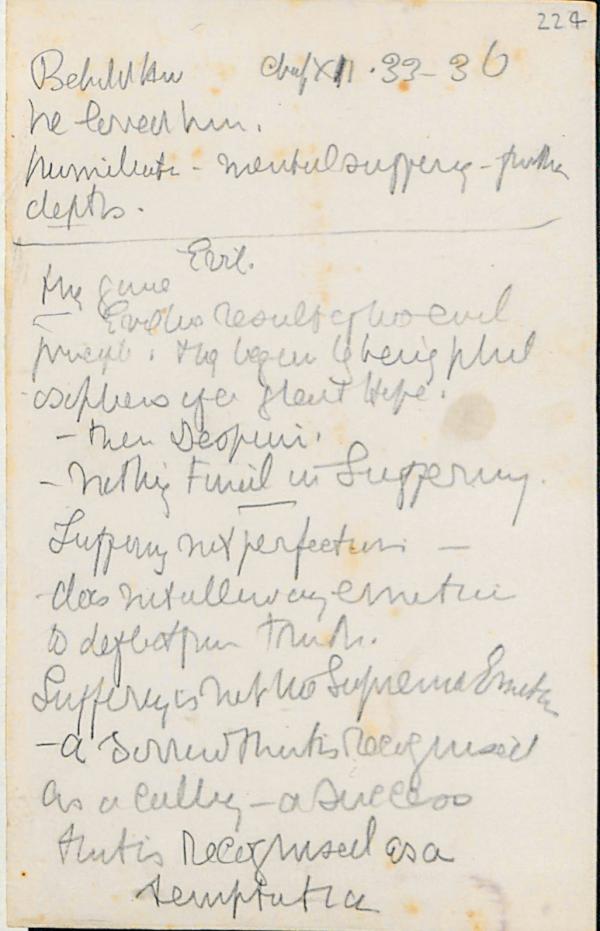 224
Behold how chap XII. 33-36
he loved him.
humiliate - mental suffering - further
depths.
Evil.
they gave
Evil no result of no evil
principle. They began by being phil
osophers of a great Hope.
- then Despair.
- nothing Final in Suffering.
Suffering not perfection -
does not allow any emotion
to deflect from Truth.
Suffering is not no Supreme Emotion
- a sorrow that is recognised
as a calling - a success
that is recognised as a
temptation